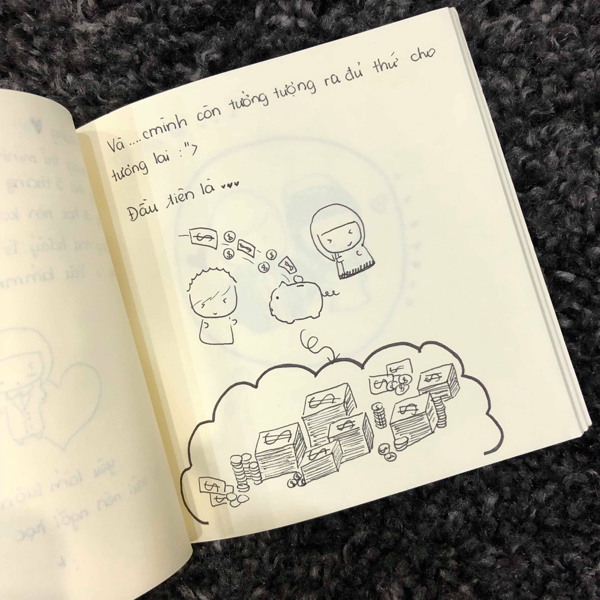 Và....cmình còn tưởng tượng ra đủ thứ cho
tương lai :">
Đầu tiên là ♥♥♥